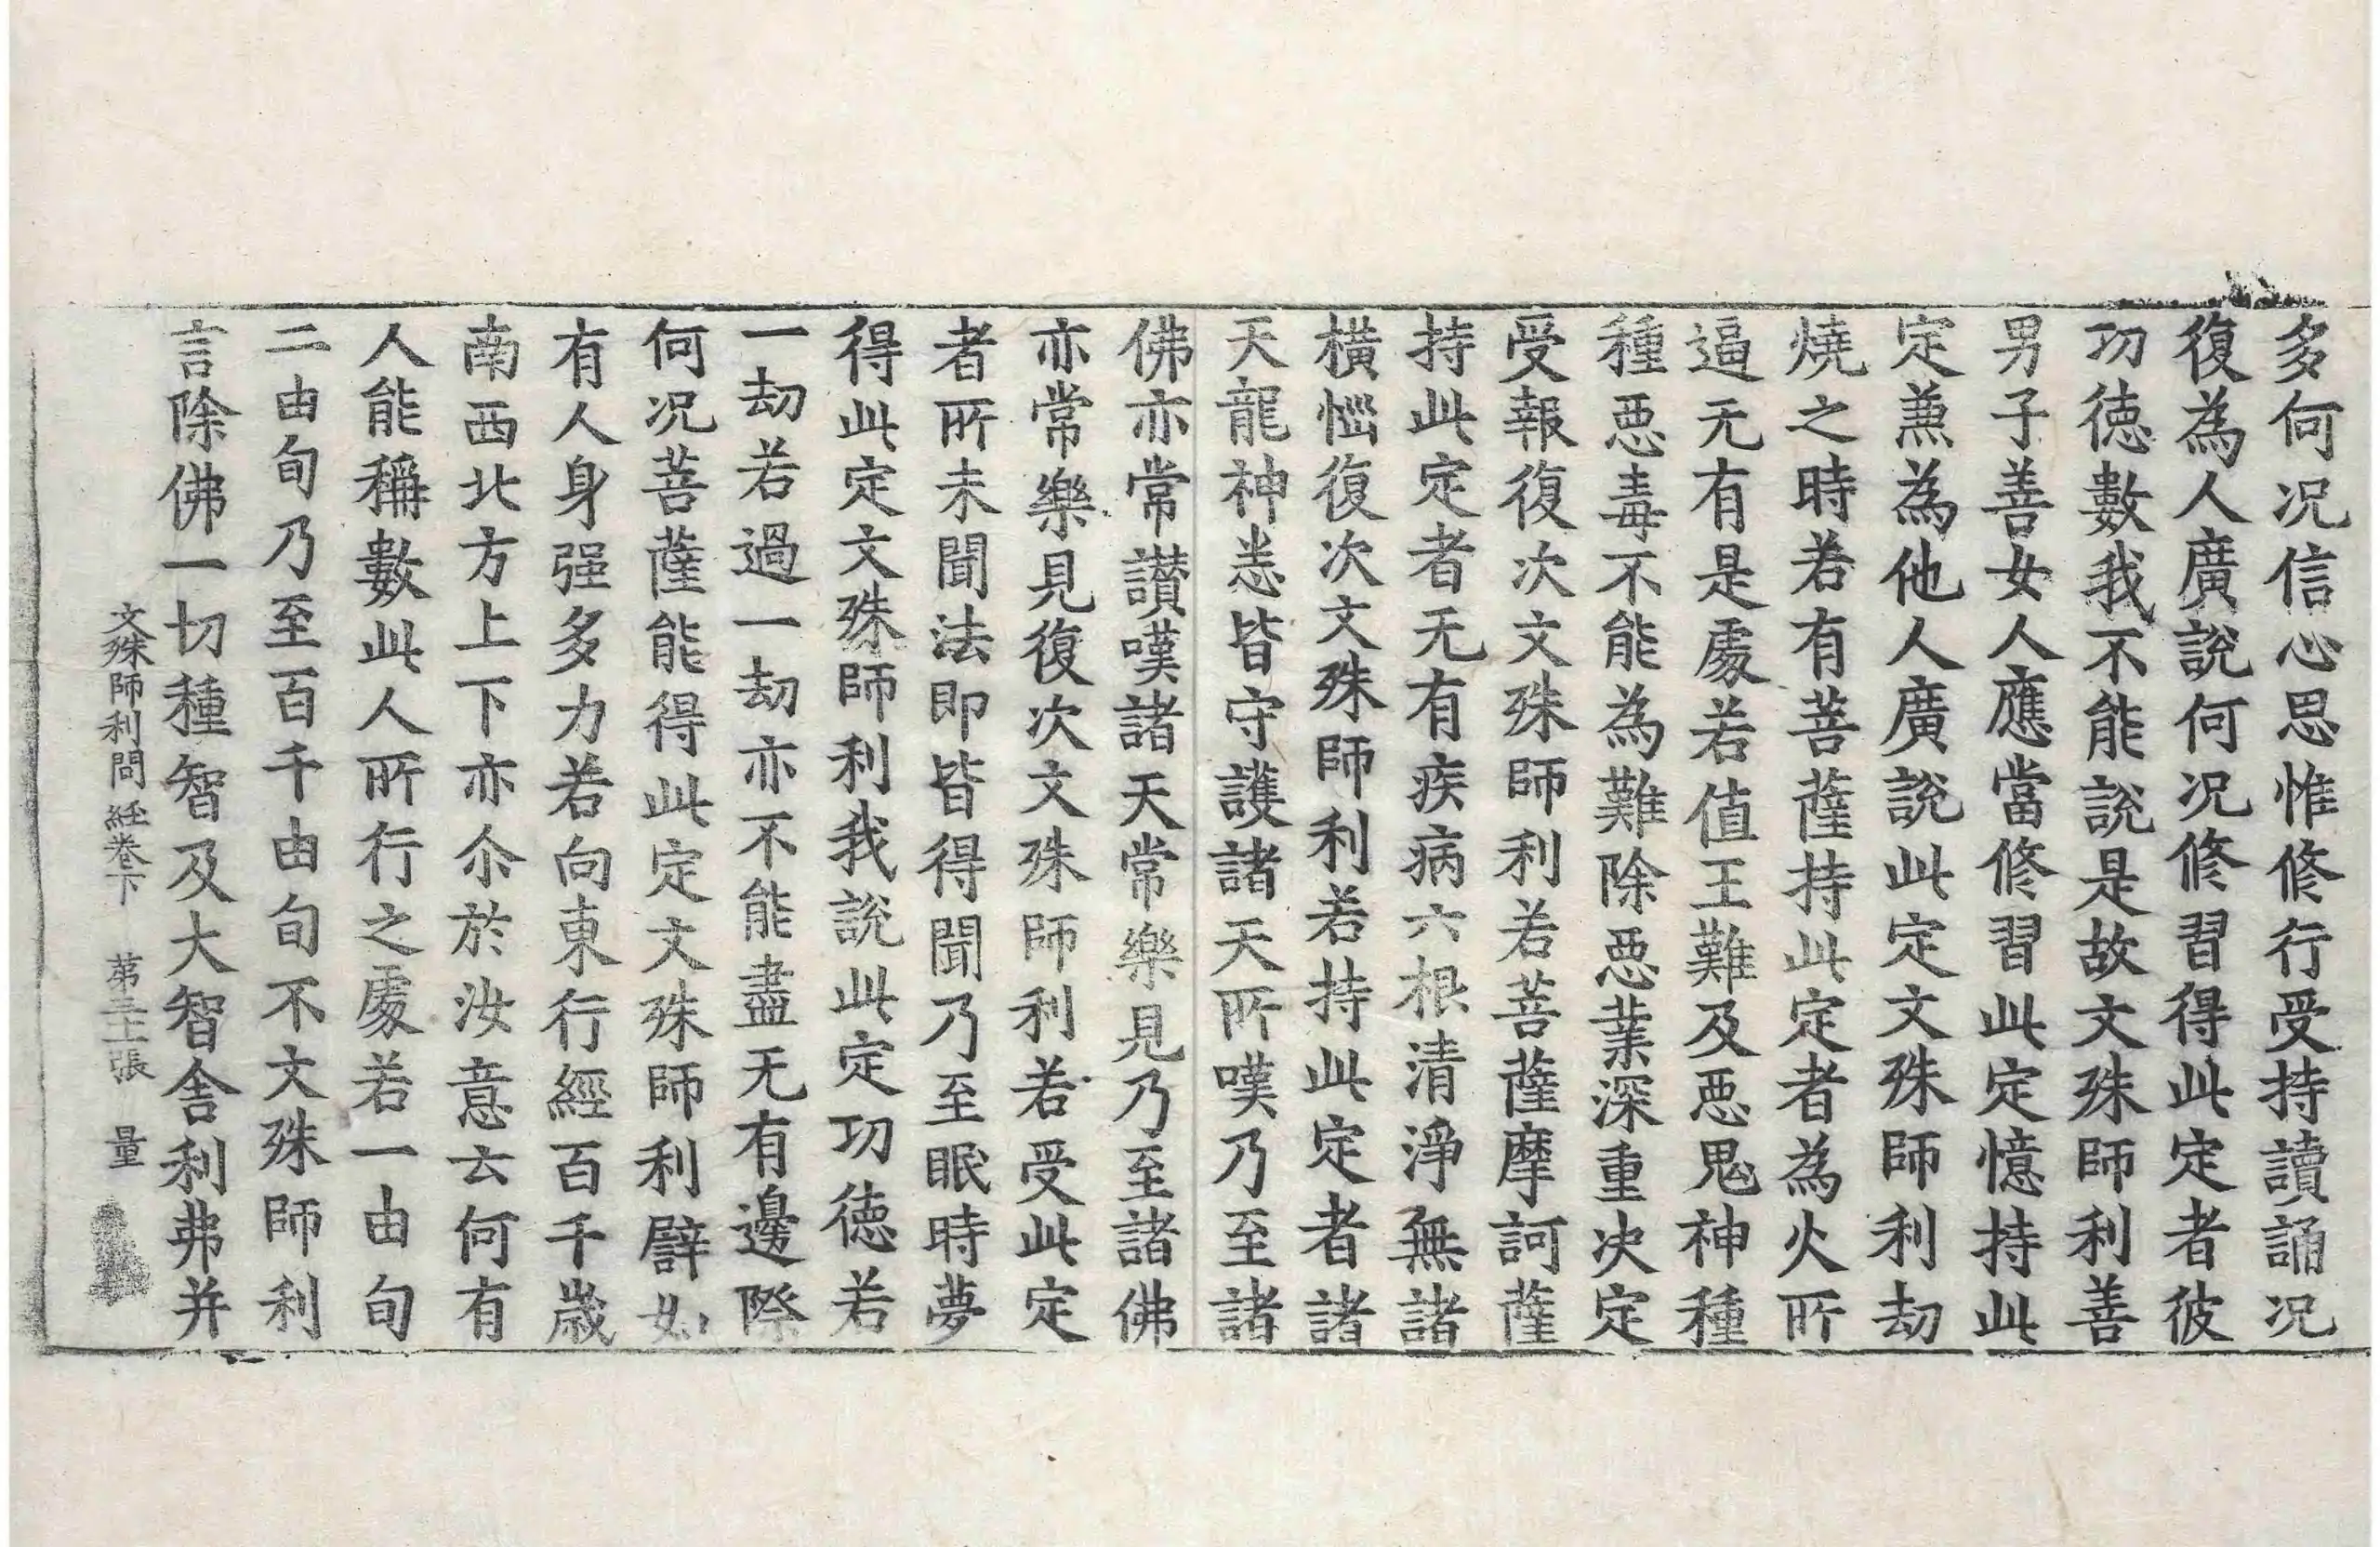 多何况信心思惟修行受持讀誦况
復為人廣說何况修習得此定者彼
功德數我不能說是故文殊師利善
男子善女人應當修習此定憶持此
定兼為他人廣說此定文殊師利劫
燒之時若有菩薩持此定者為火所
逼无有是處若值王難及惡鬼神種
種惡毒不能為難除惡業深重決定
受報復次文殊師利若菩薩摩訶薩
持此定者无有疾病六根清淨無諸
橫惱復次文殊師利若持此定者諸
天龍神恙皆守護諸天所嘆乃至諸
佛亦常讃嘆諸天常樂見乃至諸佛
亦常樂見復次文殊師利若受此定
者所未聞法即皆得聞乃至眠時夢
得此定文殊師利我說此定功德若
一劫若過一劫亦不能盡无有邊際
何况菩薩能得此定文殊師利譬如
有人身强多力若向東行經百千歲
南西北方上下亦尒於汝意云何有
人能稱數此人所行之處若一由旬
二由旬乃至百千由旬不文殊師利
言除佛一切種智及大智舍利弗并
文殊師利問経卷下 第三十張 量